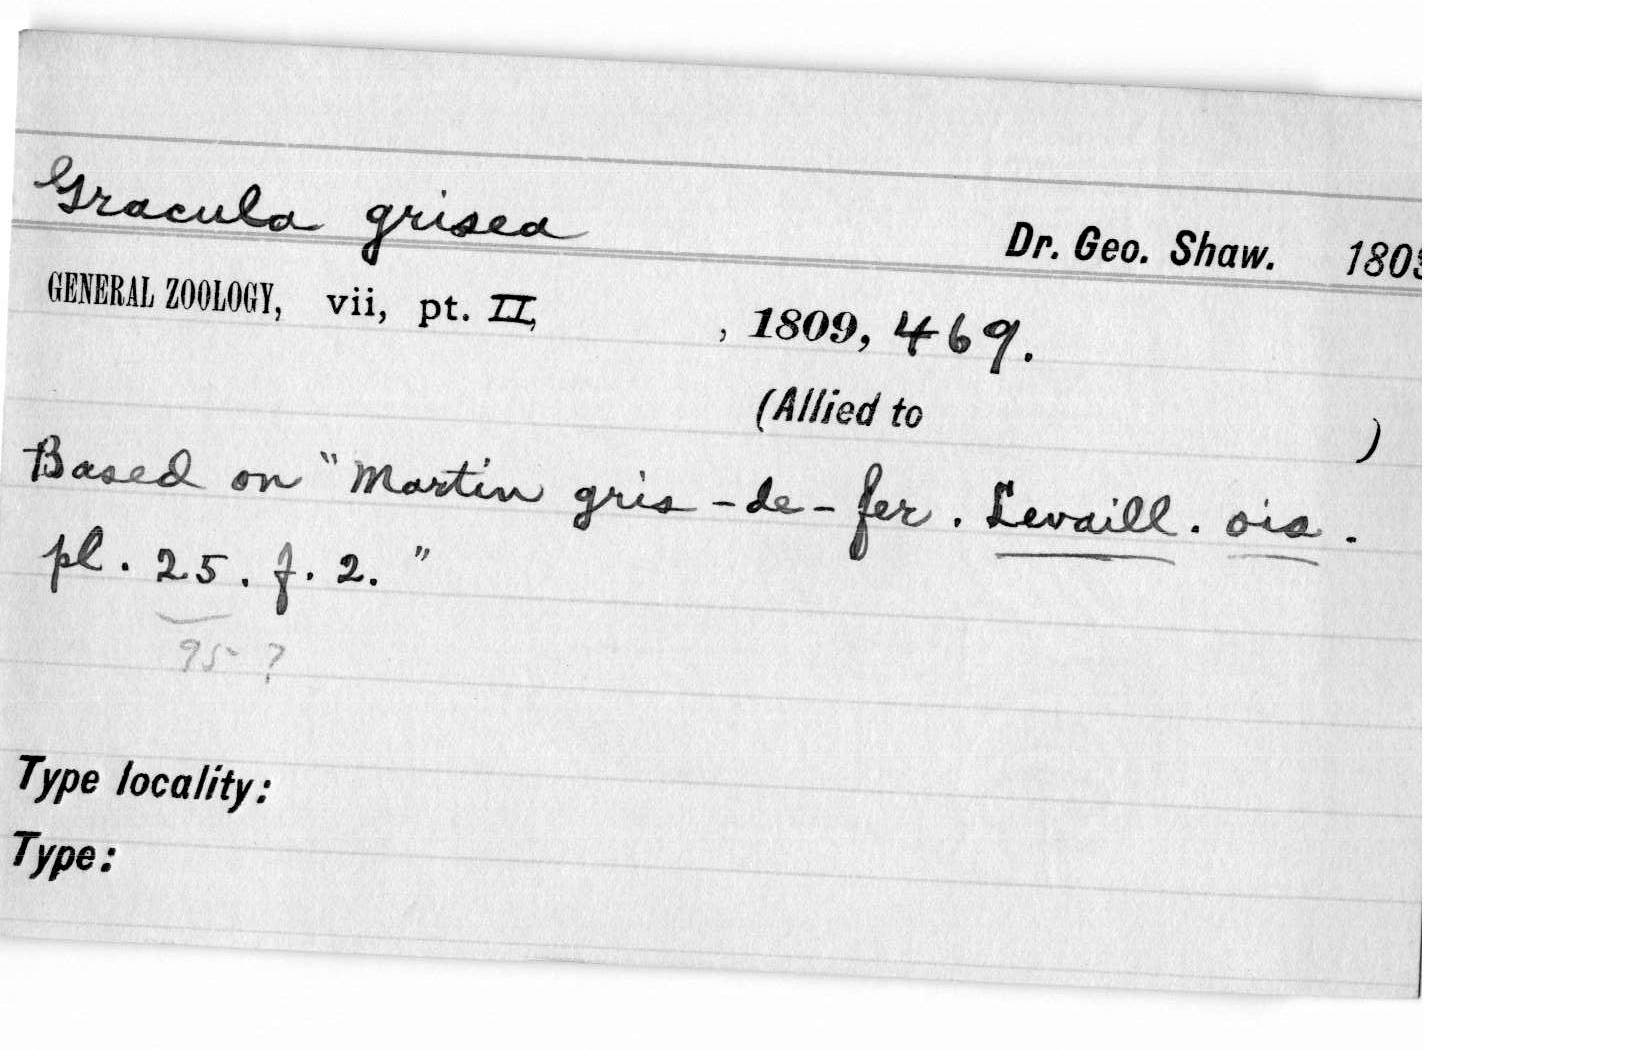 Gracula grisea
Dr. Geo. Shaw. 1809
GENERAL ZOOLOGY, vii, pt. II, , 1809, 469.
(Allied to )
Based on "Martin gris-de-fer. Levaill. ois.
pl. 25. f. 2."
95?
Type locality:
Type: